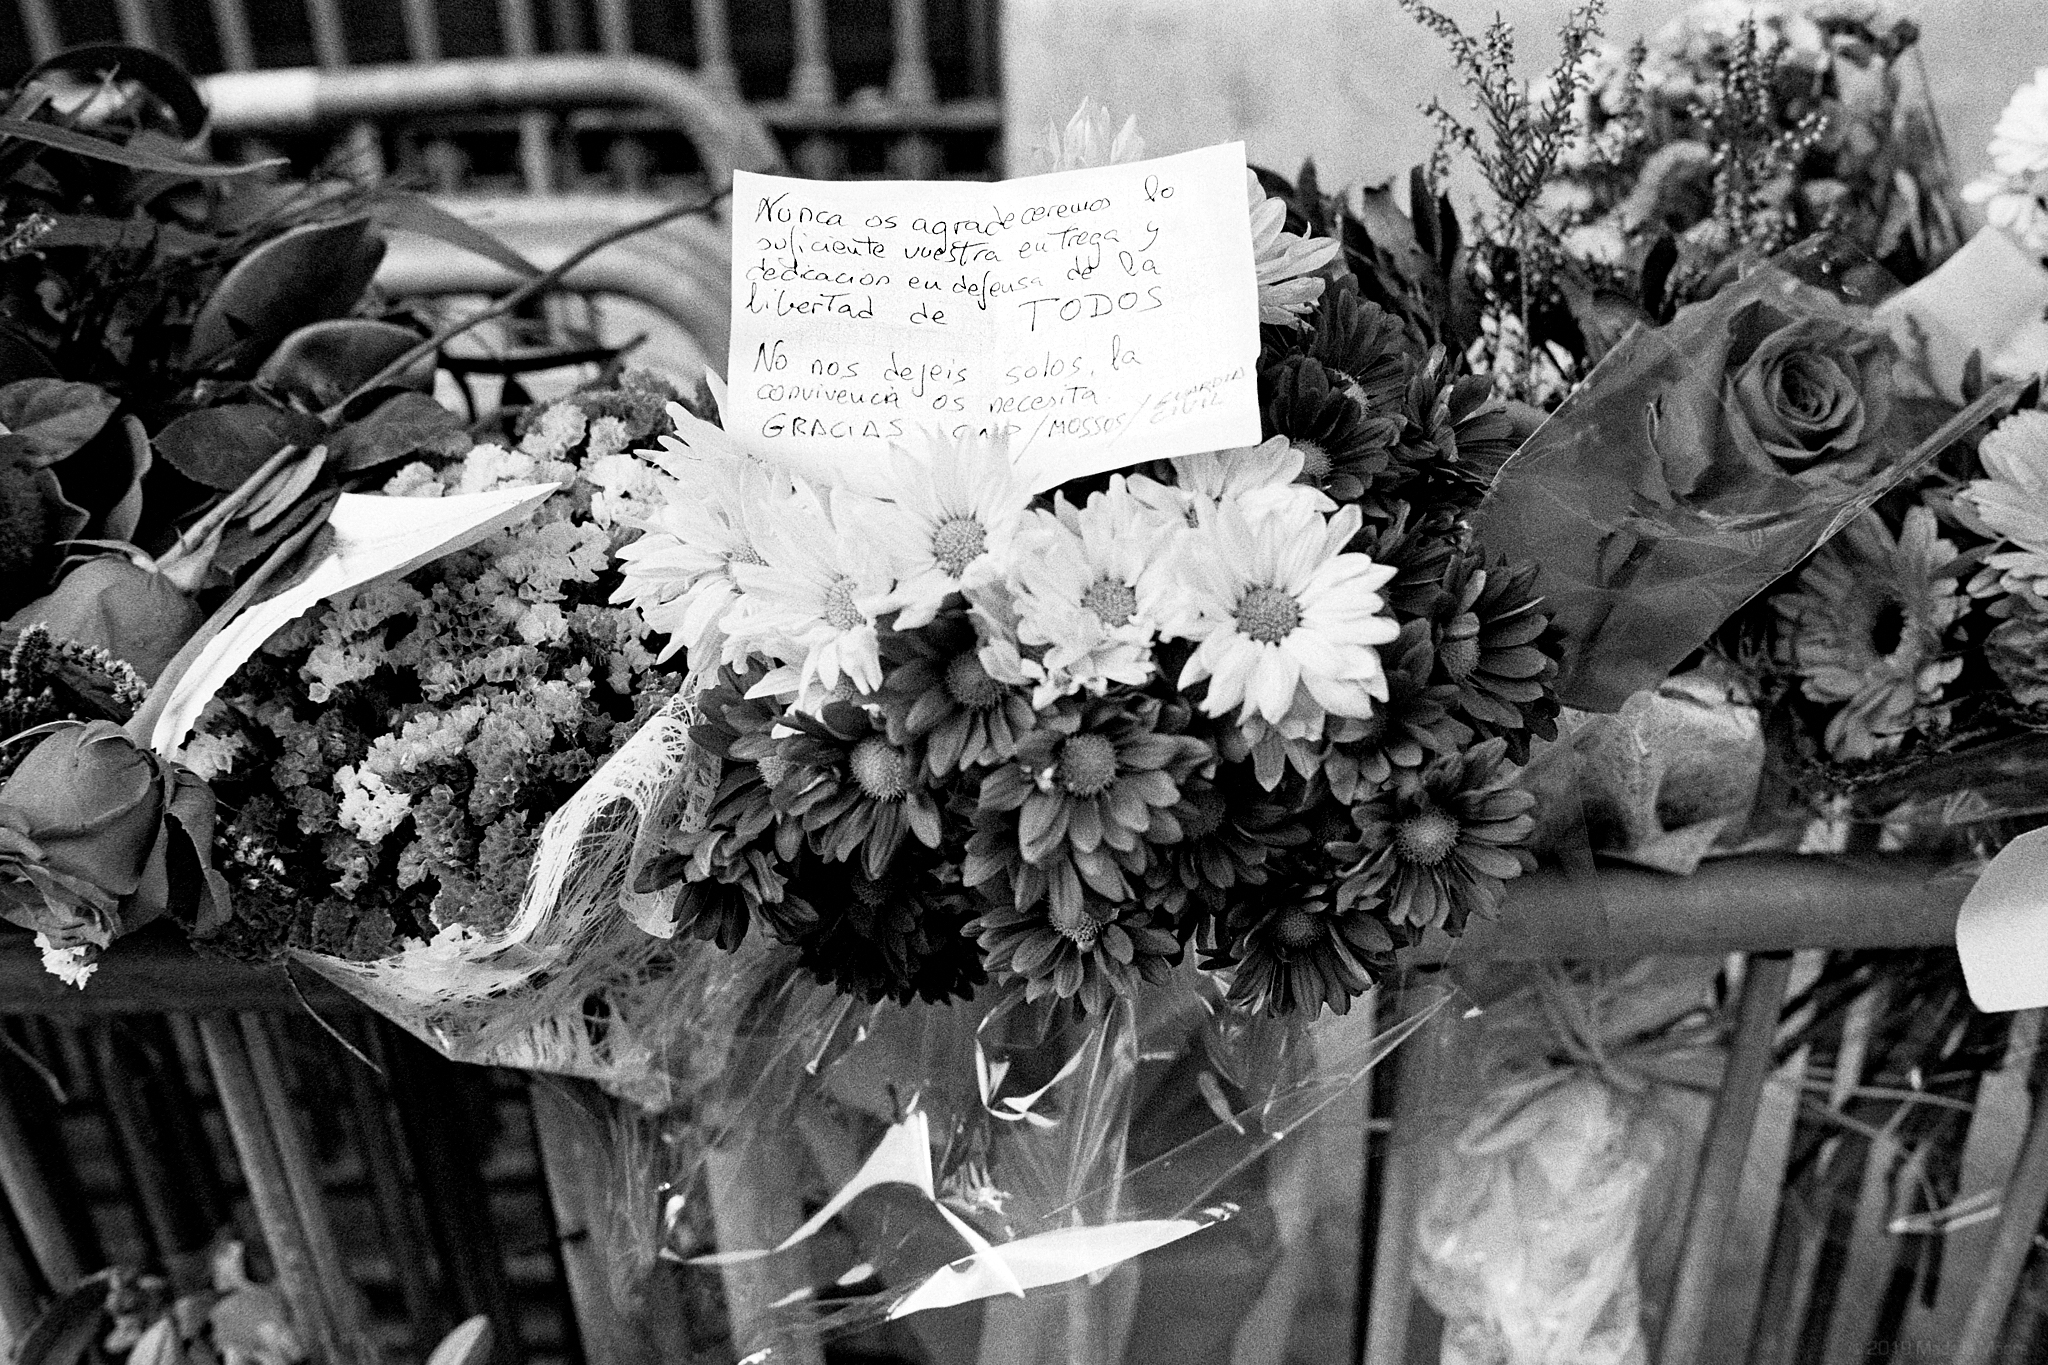 Nunca os agradeceremos lo
suficiente vuestra entrega y
dedicacion en defensa de la
libertad de TODOS
No nos dejeis solos, la
convivencia os necesita.
GRACIAS CNP/MOSSOS/GUARDIA
CIVIL
© 2019